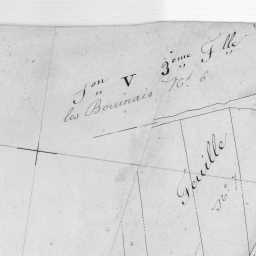 Son V 3eme Flle
les Bouinais No. 6
Feuille
No. 7